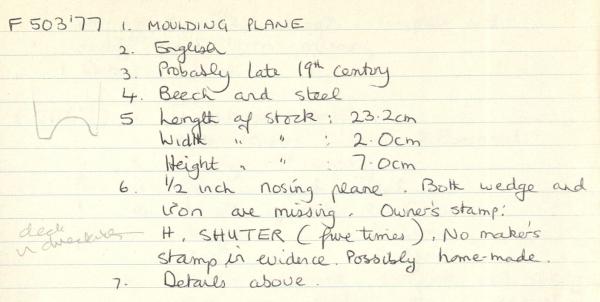 F 503'77 1. MOULDING PLANE
2. English
3. Probably late 19th century
4. Beech and steel
5 Length of stock : 23.2cm
Width " " : 2.0cm
Height " " : 7.0cm
6. 1/2 inch nosing plane. Both wedge and
iron are missing. Owner's stamp:
H. SHUTER (five times). No maker's
stamp in evidence. Possibly home-made.
7. Details above.